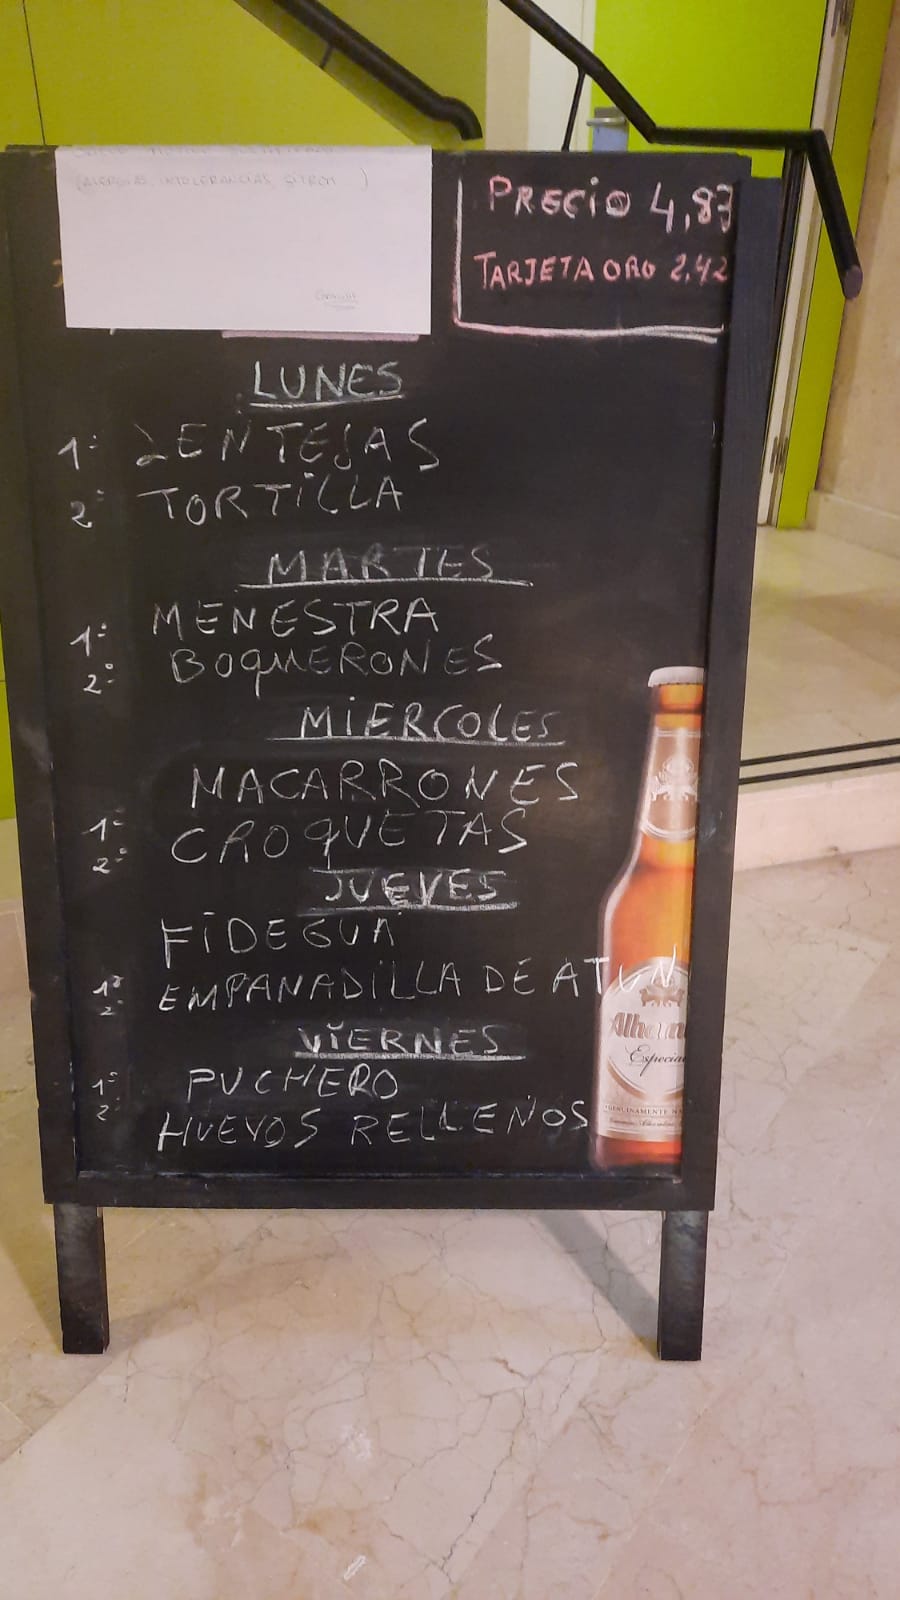 (ALERGIAS, INTOLERANCIAS, SINTROM )
Gracias
PRECIO 4,83
TARJETA ORO 2,42
LUNES
1º LENTEJAS
2º TORTILLA
MARTES
1º MENESTRA
2º BOQUERONES
MIERCOLES
MACARRONES
1º CROQUETAS
2º
JUEVES
FIDEGUA
1º EMPANADILLA DE ATUN
2º
VIERNES
1º PUCHERO
2º HUEVOS RELLENOS
Alham
Especial
GENUINAMENTE NA